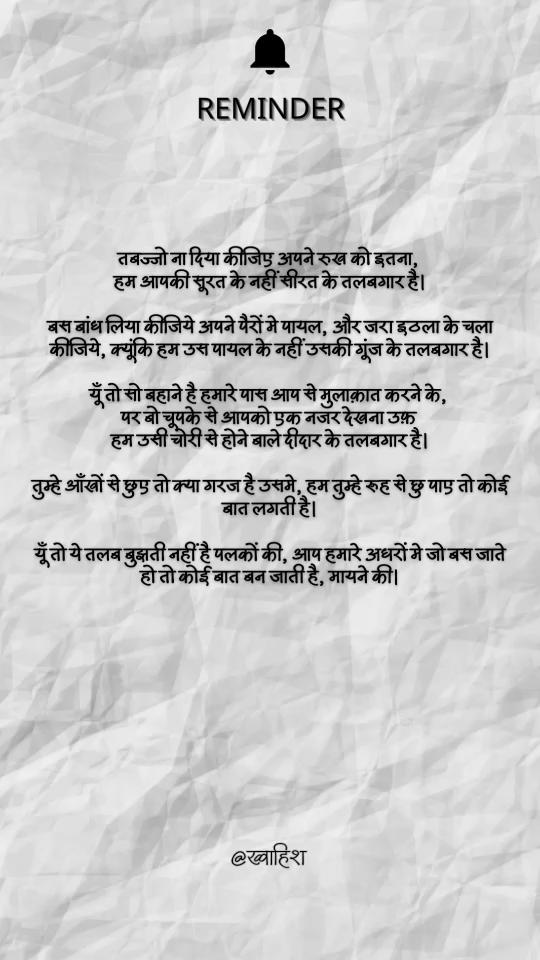 REMINDER
तबज्जो ना दिया कीजिए अपने रुख को इतना,
हम आपकी सूरत के नहीं सीरत के तलबगार है|
बस बांध लिया कीजिये अपने पैरों मे पायल, और जरा इठला के चला
कीजिये, क्यूंकि हम उस पायल के नहीं उसकी गूंज के तलबगार है|
यूँ तो सो बहाने है हमारे पास आप से मुलाक़ात करने के,
पर बो चूपके से आपको एक नजर देखना उफ़
हम उसी चोरी से होने बाले दीदार के तलबगार है|
तुम्हे आँखों से छुए तो क्या गरज है उसमे, हम तुम्हे रूह से छु पाए तो कोई
बात लगती है|
यूँ तो ये तलब बुझती नहीं है पलकों की, आप हमारे अधरों मे जो बस जाते
हो तो कोई बात बन जाती है, मायने की|
@ख्वाहिश